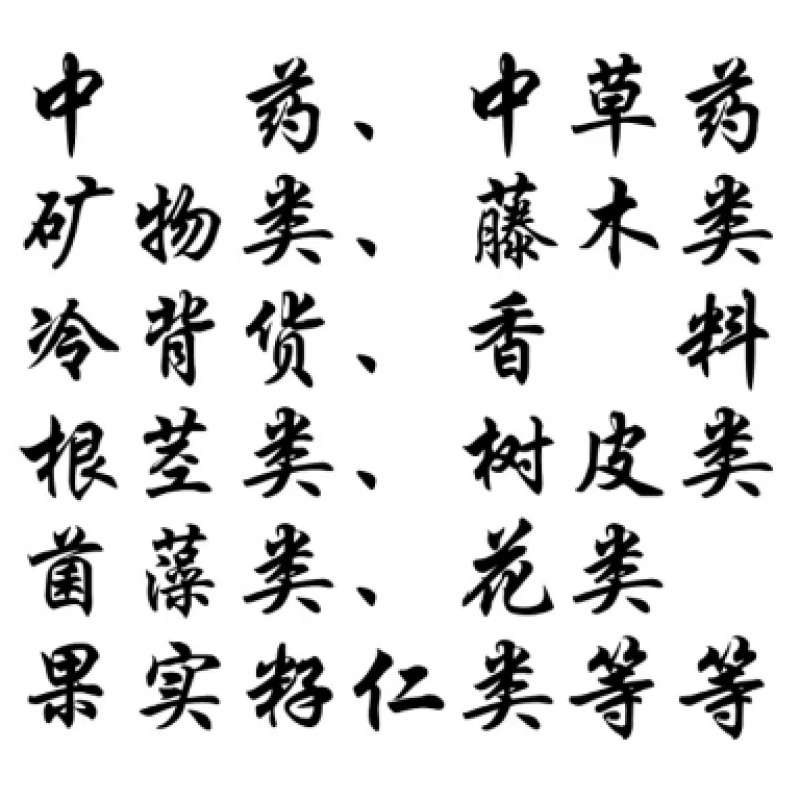 中 药、中草药
矿物类、藤木类
冷背货、香 料
根茎类、树皮类
菌藻类、花类
果实籽仁类等等